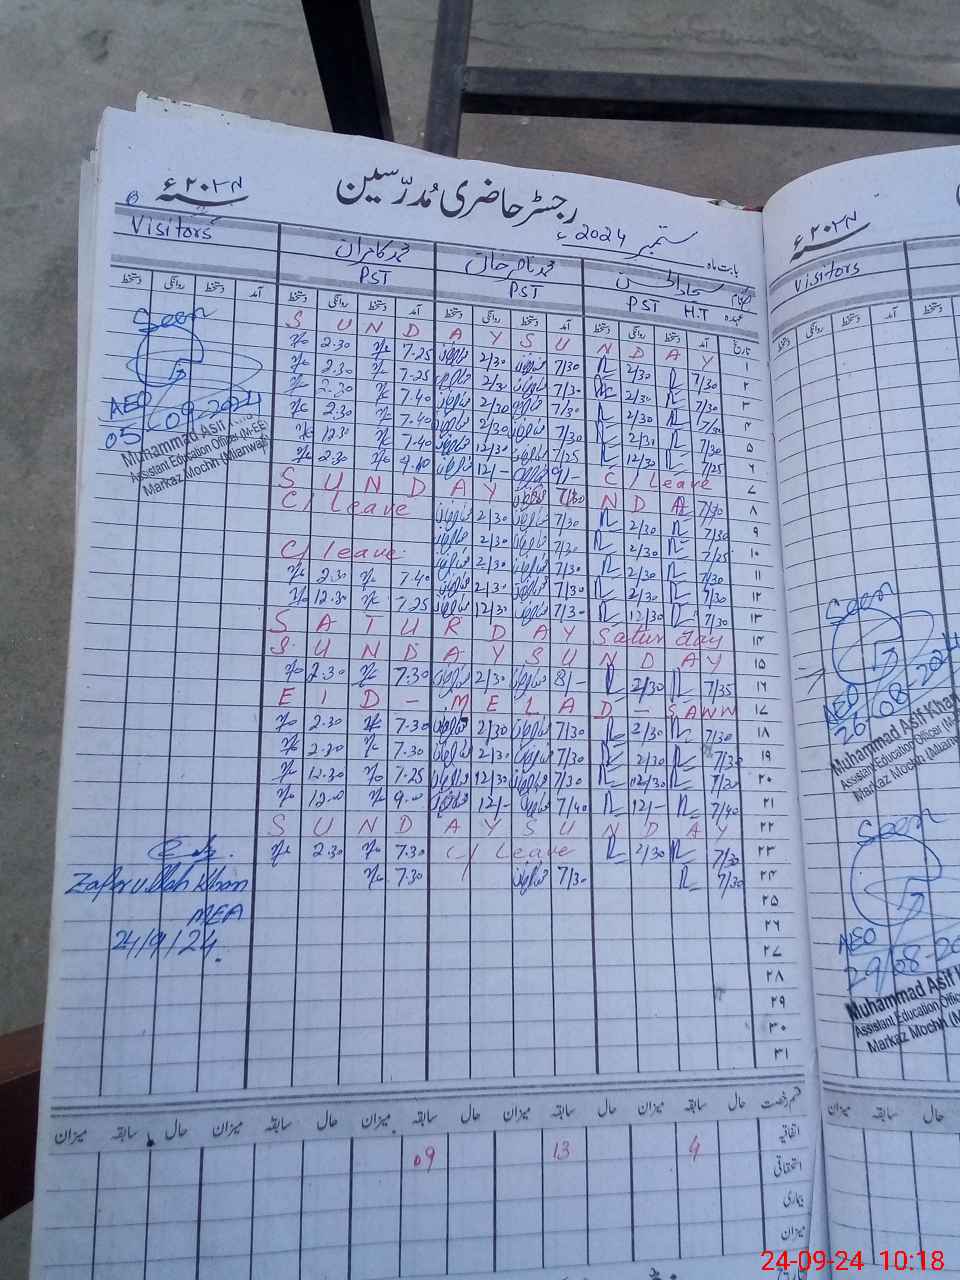 رجسٹر حاضری مدرسین
بابت ماہ ستمبر 2024ء
Visitors
محمد کامران
محمد ناصر خان
PST
PST
PST H.T
تاریخ
آمد دستخط روانگی دستخط آمد دستخط روانگی دستخط آمد دستخط روانگی دستخط آمد دستخط روانگی دستخط
S U N D A Y S U N D A Y ۱
2.30 7.25 2/30 7/30 2/30 7/30 ۲
2.30 7.25 2/30 7/30 2/30 7/30 ۳
2.30 7.40 2/30 7/30 2/30 7/30 ۴
2.30 7.40 2/30 7/30 2/31 7/30 ۵
12.30 7.40 12/30 7/25 12/30 7/25 ۶
2.30 9.00 12/- 9/- C/ Leave ۷
S U N D A Y 7/30 N D A 7/30 ۸
C/ Leave 2/30 7/30 2/30 7/30 ۹
2/30 7/30 2/30 7/25 ۱۰
C/ leave 2/30 7/30 2/30 7/30 ۱۱
2.30 7.40 2/30 7/30 2/30 7/30 ۱۲
12.30 7.25 12/30 7/30 12/30 7/30 ۱۳
S A T U R D A Y Saturday ۱۴
S U N D A Y S U N D A Y ۱۵
2.30 7.30 2/30 8/- 2/30 7/35 ۱۶
E I D - M E L A D - S A W W ۱۷
2.30 7.30 2/30 7/30 2/30 7/30 ۱۸
2.20 7.30 2/30 7/30 2/30 7/30 ۱۹
12.30 7.25 12/30 7/30 12/30 7/20 ۲۰
12.00 9.00 12/- 7/40 12/- 7/40 ۲۱
S U N D A Y S U N D A Y ۲۲
2.30 7.30 C/ Leave 2/30 7/30 ۲۳
7.30 7/30 7/30 ۲۴
۲۵
۲۶
۲۷
۲۸
۲۹
۳۰
۳۱
Seen
AEO
05-09-2024
Muhammad Asif
Assistant Education Officer (M-EE)
Markaz Mochh (Mianwali)
Zafarullah Khan
MEA
24/9/24.
قسم رخصت حال سابقہ میزان حال سابقہ میزان حال سابقہ میزان حال سابقہ میزان
اتفاقیہ 4 13 09
استحقاقی
بیماری
میزان
Visitors
Seen
AEO
26-08-2024
Muhammad Asif Khan
Assistant Education Officer
Markaz Mochh
Seen
AEO
29/08-20
Muhammad Asif
Assistant Education Office
Markaz Mochh
میزان سابقہ حال
24-09-24 10:18